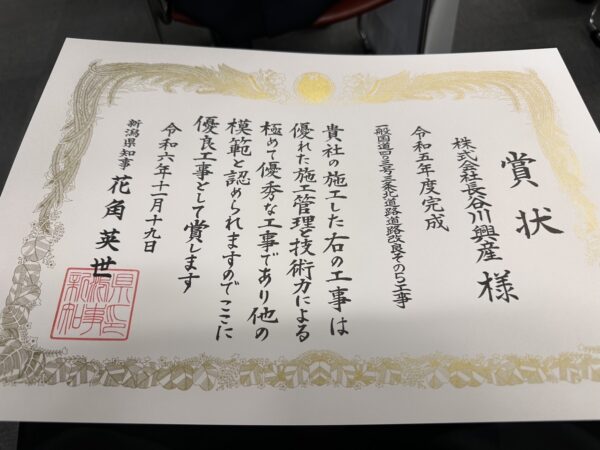 賞状
株式会社長谷川興産 様
令和五年度完成
一般国道四〇三号三条北道路道路改良その5工事
貴社の施工した右の工事は
優れた施工管理と技術力による
極めて優秀な工事であり他の
模範と認められますのでここに
優良工事として賞します
令和六年十一月十九日
新潟県知事 花角英世
新潟県知事之印